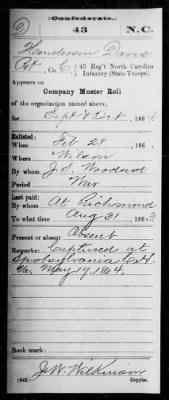 (Confederate.)
43 N.C.
Henderson Davis
Pvt, Co. C, 43 Reg't North Carolina
Infantry (State Troops.)
Appears on
Company Muster Roll
of the organization named above,
for Sept & Oct, 1864
Enlisted:
When Feb 28, 186
Where Wilson
By whom J. S. Woodard
Period War
Last paid:
By whom At Richmond
To what time Aug 31, 1863
Present or absent Absent
Remarks: Captured at
Spotsylvania C.H.
Va. May 19, 1864.
Book mark:
J. W. Wilkinson
(642) Copyist.